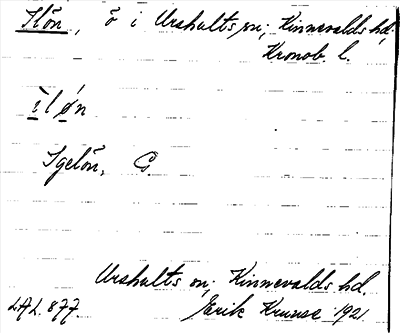 Ilön, ö i Urshults sn; Kinnevalds hd,
Kronob. l.
ìløn
Igelön, C.
Urshults sn; Kinnevalds hd.
LAL. 877. Erik Kruuse 1921